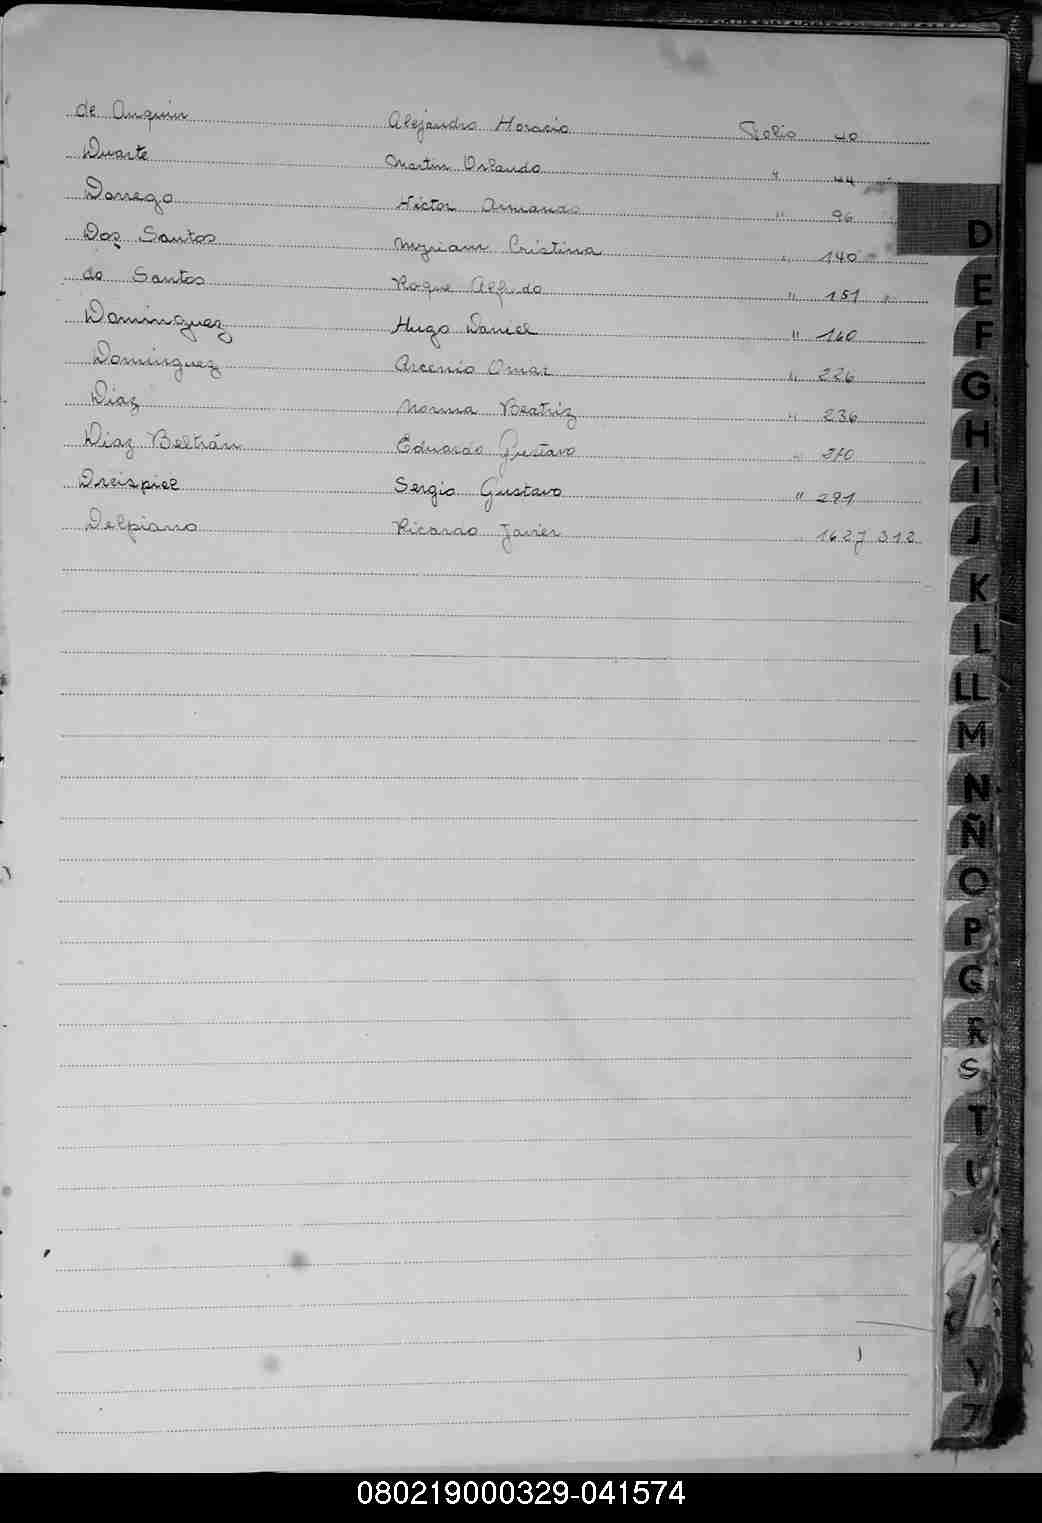 de Anquin Alejandro Horacio Folio 40
Duarte Martin Orlando " 44
Dorrego Héctor Armando " 96
Dos Santos Myriam Cristina " 140
do Santos Roque Alfredo " 151 "
Dominguez Hugo Daniel " 160
Dominguez Arcenio Omar " 226
Diaz Norma Beatriz " 236
Diaz Beltrán Eduardo Gustavo " 270
Dreispiel Sergio Gustavo " 291
Delpiano Ricardo Javier " 312
D
E
F
G
H
I
J
K
L
LL
M
N
Ñ
O
P
Q
R
S
T
U
Y
Z
080219000329-041574